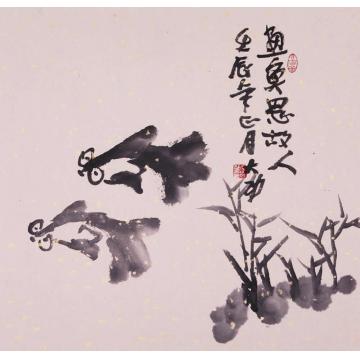 画鱼思故人
壬辰年正月